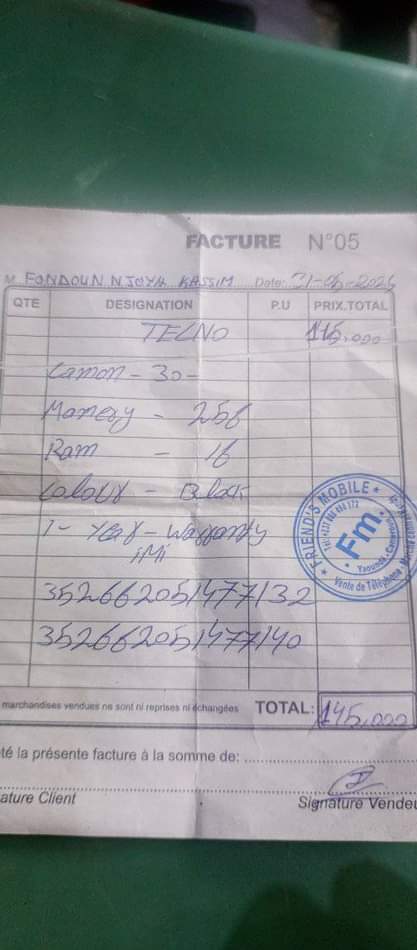 FACTURE N°05
M FONDOUN NJOYA KASSIM Date: 31-05-2025
QTE DESIGNATION P.U PRIX.TOTAL
TECNO 145.000
Camon - 30 -
Memory - 256
Ram - 16
Colour - Black
1 - Year - Warranty
iMi
352662051477132
352662051477140
FRIEND'S MOBILE
Fm
Yaoundé - Cameroun
Vente de Téléphone
marchandises vendues ne sont ni reprises ni échangées TOTAL: 145.000
té la présente facture à la somme de:
ature Client Signature Vendeu